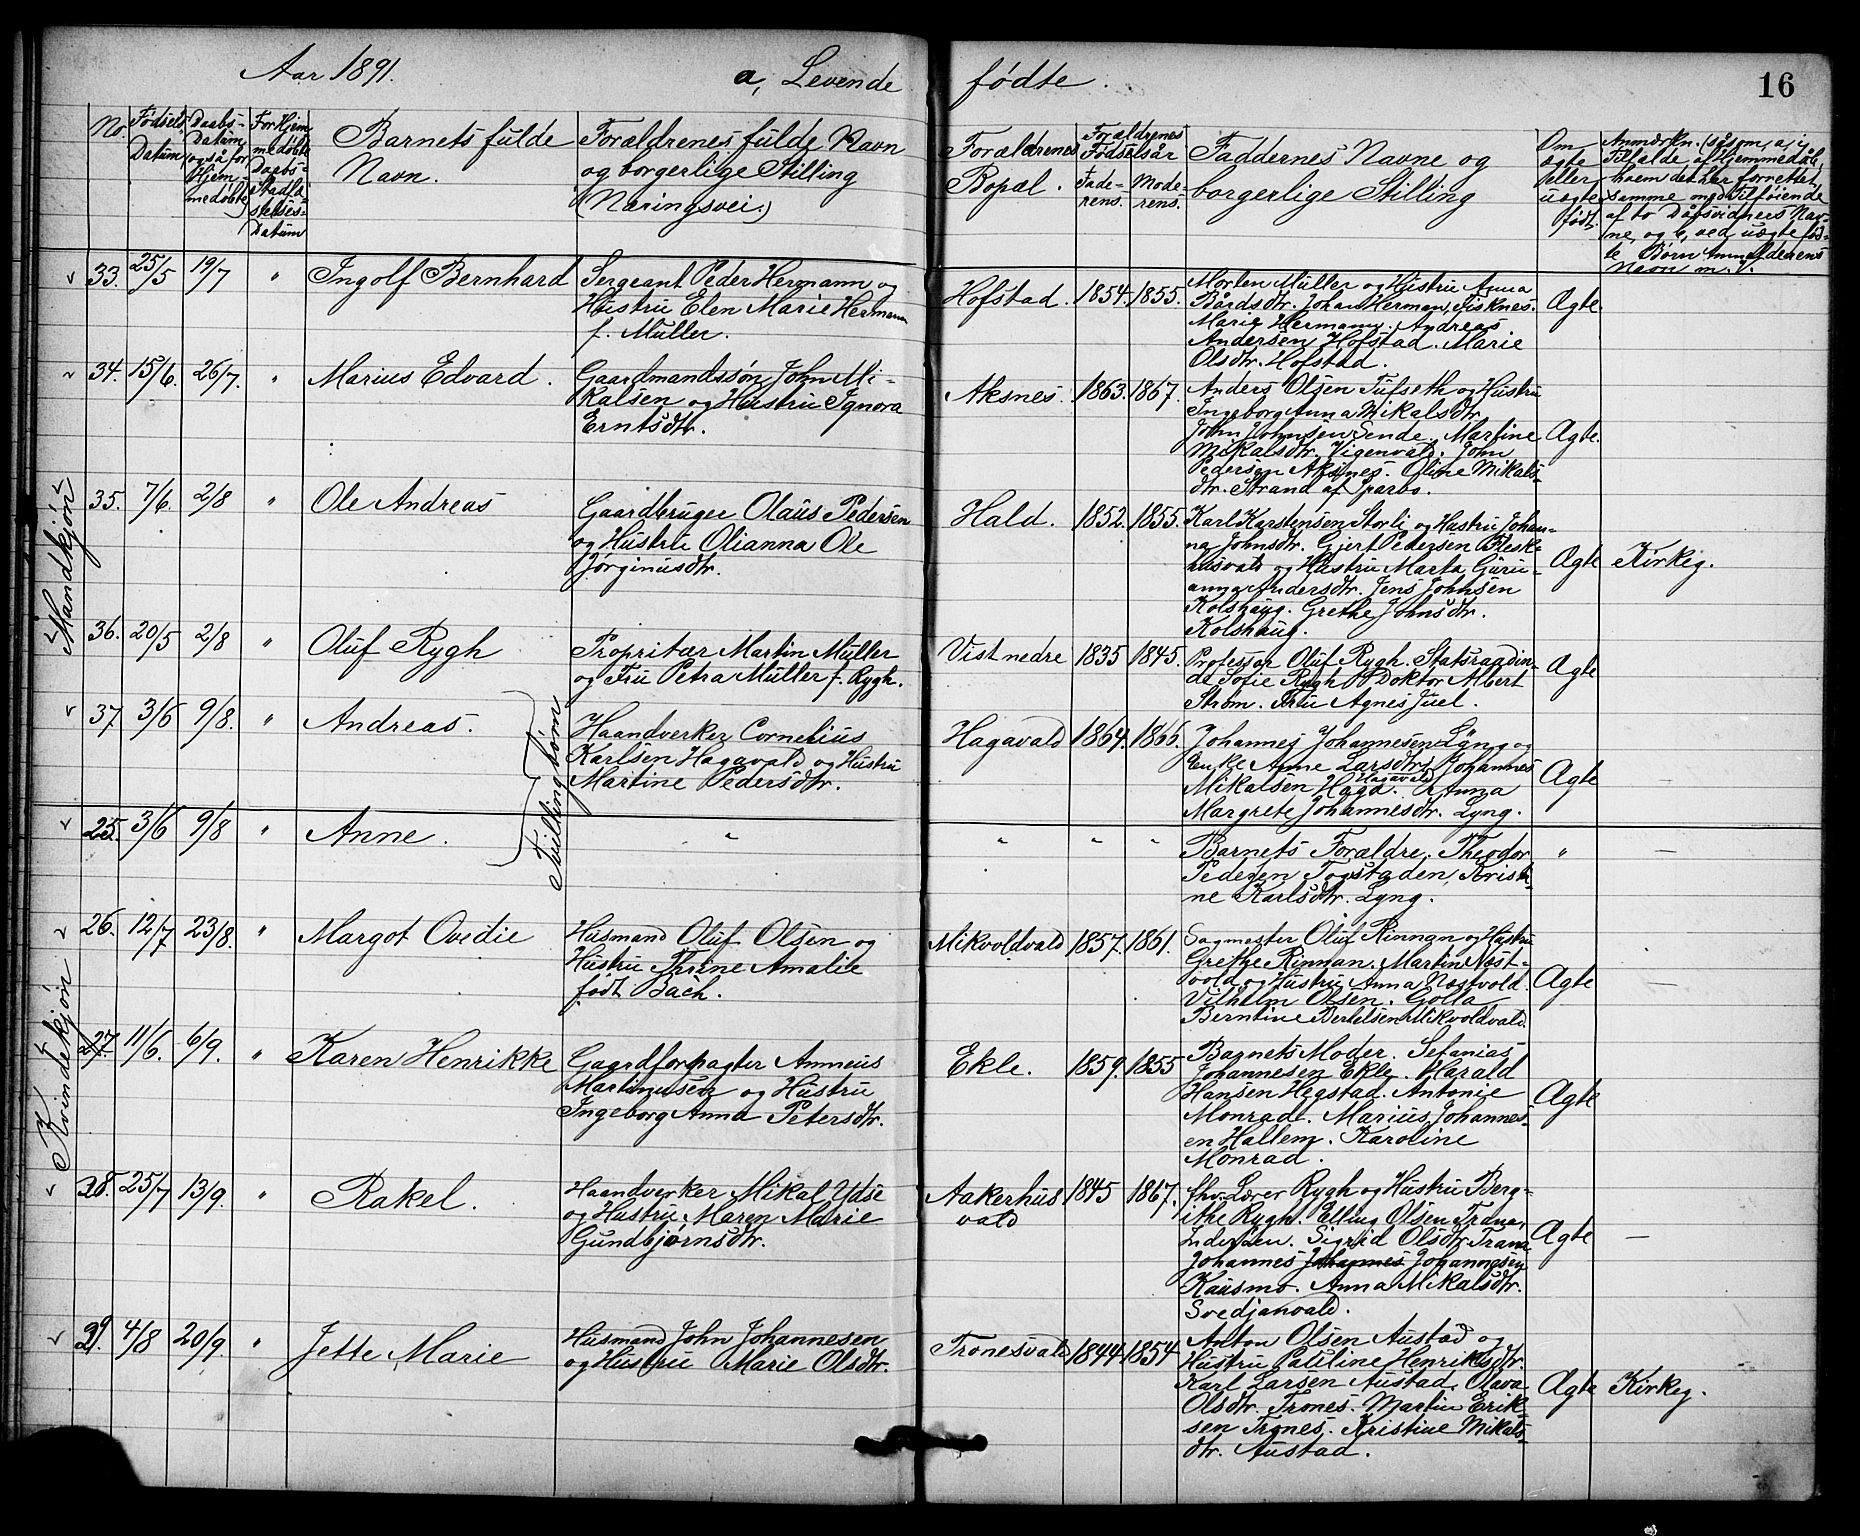 Aar 1891.
a, Levende
fødte.
16
No.
Fødsels Datum
Daabs-Datum (også for Hjemmedøbte)
For Hjemmedøbte Daabs-Stadfæstelses-Datum
Barnets fulde Navn.
Forældrenes fulde Navn og borgerlige Stilling (Næringsvei.)
Forældrenes Bopæl.
Forældrenes Fødselsår
Faderens.
Moderens.
Faddernes Navne og borgerlige Stilling
Om ægte eller uægte født.
Anmærkn. (såsom, a, i Tilfælde af Hjemmedåb, hvem det har forrettet samme med Tilføiende af to Dåbsvidners Navne, og b, ved uægte fødte Børn
Navn m. V.
Mandkjøn
33. 25/5 19/7 " Ingolf Bernhard
Sergeant Peder Hermann og
Hustru Elen Marie Hermann
f. Müller.
Hofstad. 1854. 1855.
Morten Müller og Hustru Anna
Bårdsdtr. Johan Herman, Fisknes.
Marie Hermann. Andreas
Andersen Hofstad. Marie
Olsdtr. Hofstad.
Ægte.
34. 15/6. 26/7. " Marius Edvard.
Gaardmandssøn John Mi-
kalsen og Hustru Ignora
Erntsdtr.
Aksnes. 1863. 1867.
Anders Olsen Tufseth og Hustru
Ingeborg Anna Mikalsdtr.
John Johnsen Sende. Martine
Mikalsdtr. Vigenvald. John
Pedersen Aksnes. Oline Mikals-
dtr. Strand af Sparbo.
Ægte.
35. 7/6. 2/8 " Ole Andreas
Gaardbruger Olaus Pedersen
og Hustru Olianna Ole
Jørginusdtr.
Hald. 1852. 1855.
Karl Karstensen Storli og Hustru Johan-
na Johnsdtr. Gjert Pedersen Bleske-
husvald og Hustru Marta Guru-
anna Andersdtr. Jens Johnsen
Kolshaug. Grethe Johnsdtr.
Kolshaug.
Ægte Kirkeg.
36. 20/5 2/8 " Oluf Rygh
Propritær Martin Müller
og Fru Petra Müller f. Rygh.
Vist nedre 1835 1845.
Professor Oluf Rygh. Statsraadin-
de Sofie Rygh Doktor Albert
Strøm. Fru Agnes Juel.
Ægte
37. 3/6 9/8. " Andreas.
Tvillingbørn
Haandverker Cornelius
Karlsen Hagavald og Hustru
Martine Pedersdtr.
Hagavald 1864. 1866.
Johannes Johannesen Lyng og
Enke Anne Larsdtr. Johannes
Mikalsen Haga. Hagavald Anna
Margrete Johannesdtr. Lyng.
Ægte —
Kvindekjøn
25. 3/6 9/8 " Anne.
" " " "
Barnets Forældre. Theodor
Pedersen Togstaden, Kristi-
ne Karlsdtr. Lyng.
" —
26. 12/7 23/8. " Margot Ovedie
Husmand Oluf Olsen og
Hustru Thrine Amalie
født Bach.
Mikvoldvald 1857. 1861.
Sagmester Oluf Rinnan og Hustru
Grethe Rinnan. Martin Næst-
vold og Hustru Anna Næstvold.
Vilhelm Olsen. Golla
Berntine Bertelsen Mikvoldvald.
Ægte —
27. 11/6. 6/9. " Karen Henrikke
Gaardforpagter Anneus
Martinusen og Hustru
Ingeborg Anna Petersdtr.
Ekle. 1859. 1855
Barnets Moder. Sefanias
Johannesen Ekle. Harald
Hansen Hegstad. Antonie
Monrad. Marius Johannes-
en Hallem. Karoline
Monrad.
Ægte
28. 25/7 13/9. " Rakel.
Haandverker Mikal Ydse
og Hustru Maren Marie
Gundbjørnsdtr.
Aakerhus
vald
1845 1867.
fhv. Lærer Rygh og Hustru Berg-
ithe Rygh. Elling Olsen Trana,
Sigrid Olsdtr. Trana
Johannes Johannes Johannesen
Kausmo. Anna Mikalsdtr.
Svedjanvald.
Ægte —
29. 4/8 20/9. " Jette Marie
Husmand John Johannesen
og Hustru Marie Olsdtr.
Tronesvald 1844. 1854.
Anton Olsen Austad og
Hustru Pauline Henriksdtr.
Karl Larsen Austad. Olava
Olsdtr. Trones. Martin Erik-
sen Trones. Kristine Mikals-
dtr. Austad.
Ægte Kirkeg.